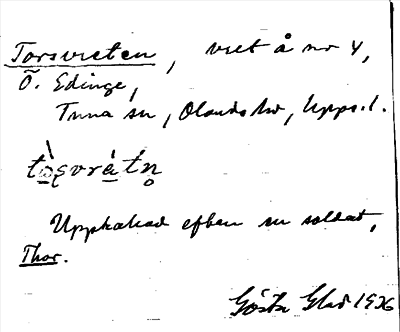 Torsvreten, vret å nr 4,
Ö. Edinge,
Tuna sn, Olands hd, Upps. l.
tòsvrètn̥
Uppkallad efter en soldat,
Thor.
Gösta Glad 1936